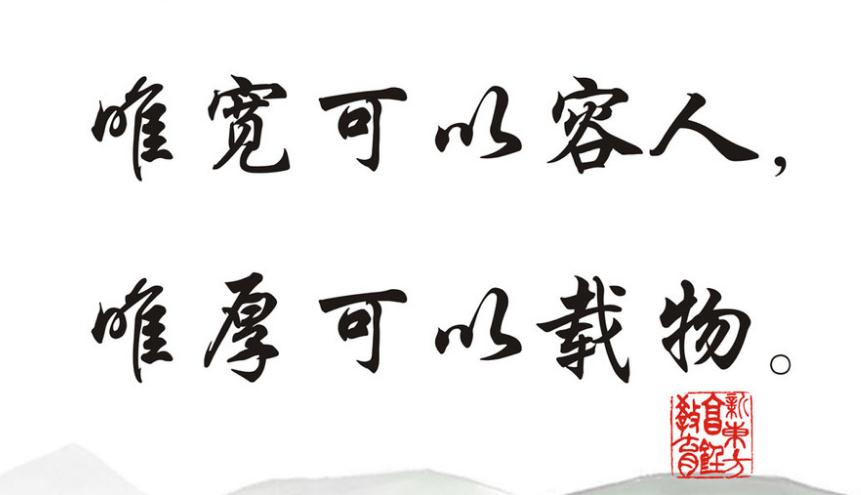 唯宽可以容人，
唯厚可以载物。
新东方
烹饪
教育